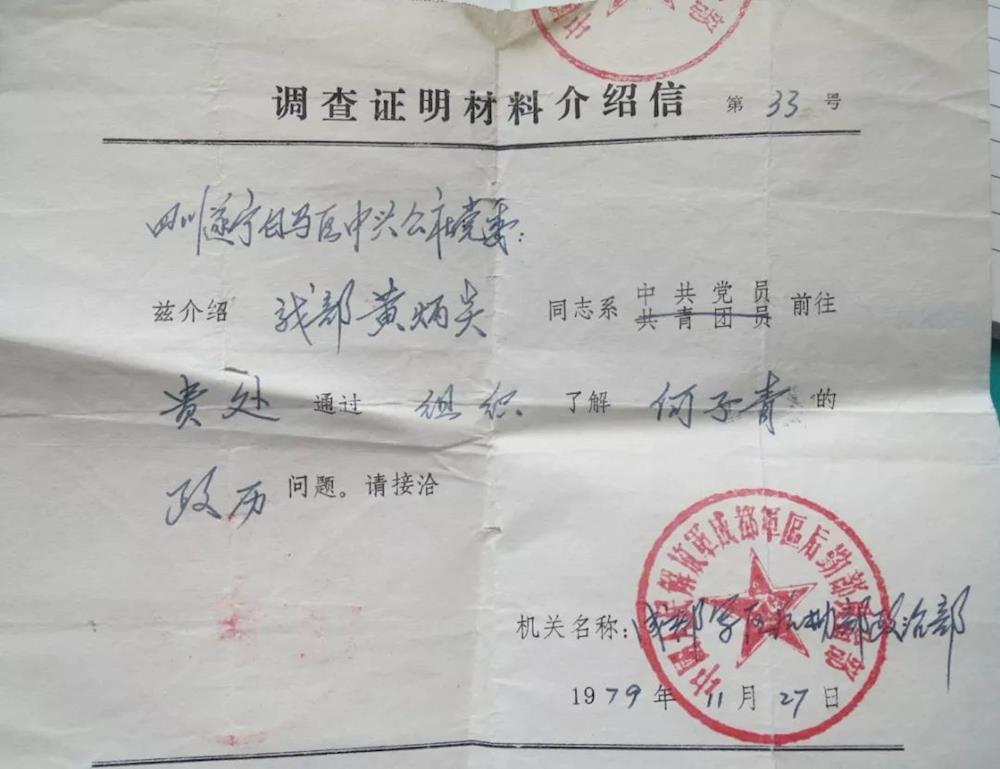 调查证明材料介绍信 第 33 号
四川遂宁白马区中兴公社党委:
兹介绍 我部黄炳炎 同志系 中共党员 共青团员 前往
贵处 通过 组织 了解 何子青 的
政历 问题。请接洽
中国人民解放军成都军区后勤部政治部
机关名称: 成都军区后勤部政治部
1979年 11月 27日